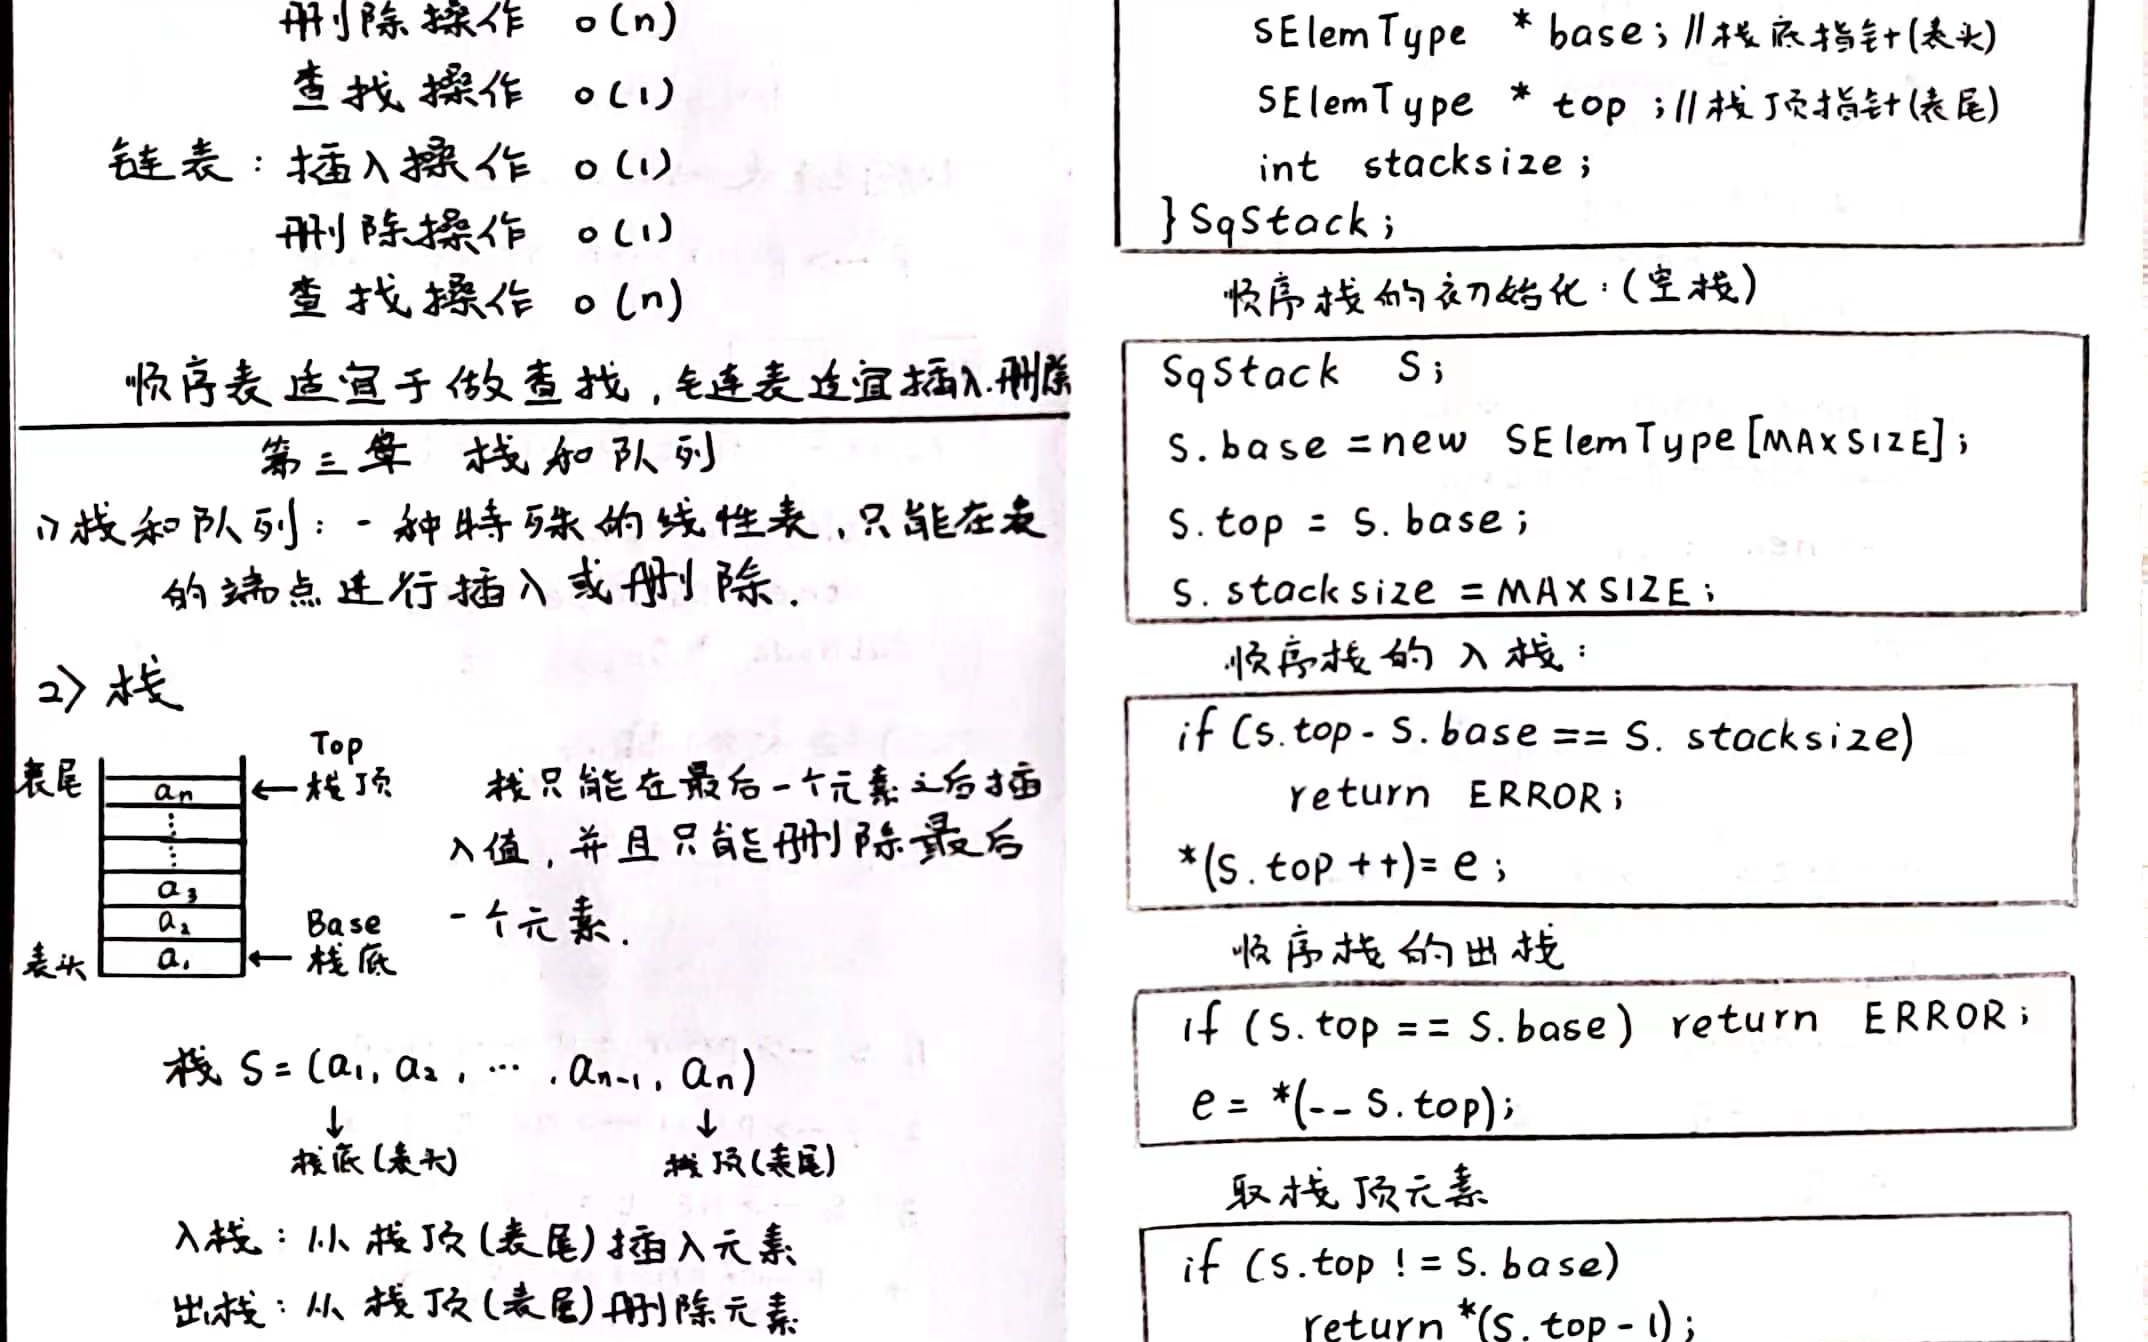 删除操作 o(n)
查找操作 o(1)
链表：插入操作 o(1)
删除操作 o(1)
查找操作 o(n)
顺序表适宜于做查找，链表适宜插入.删除
第三章 栈和队列
1>栈和队列：一种特殊的线性表，只能在表
的端点进行插入或删除.
2>栈
表尾
an
⋮
⋮
a3
a2
表头
a1
Top
←栈顶
Base
←栈底
栈只能在最后一个元素之后插
入值，并且只能删除最后
一个元素.
栈 S=(a1, a2, ⋯, an-1, an)
↓ ↓
栈底(表头) 栈顶(表尾)
入栈：从栈顶(表尾)插入元素
出栈：从栈顶(表尾)删除元素
SElemType *base;//栈底指针(表头)
SElemType *top;//栈顶指针(表尾)
int stacksize;
}SqStack;
顺序栈的初始化：(空栈)
SqStack S;
S.base=new SElemType[MAXSIZE];
S.top = S.base;
S.stacksize=MAXSIZE;
顺序栈的入栈：
if (S.top-S.base==S.stacksize)
return ERROR;
*(S.top++)=e;
顺序栈的出栈
if (S.top==S.base) return ERROR;
e= *(--S.top);
取栈顶元素
if (S.top!=S.base)
return *(S.top-1);